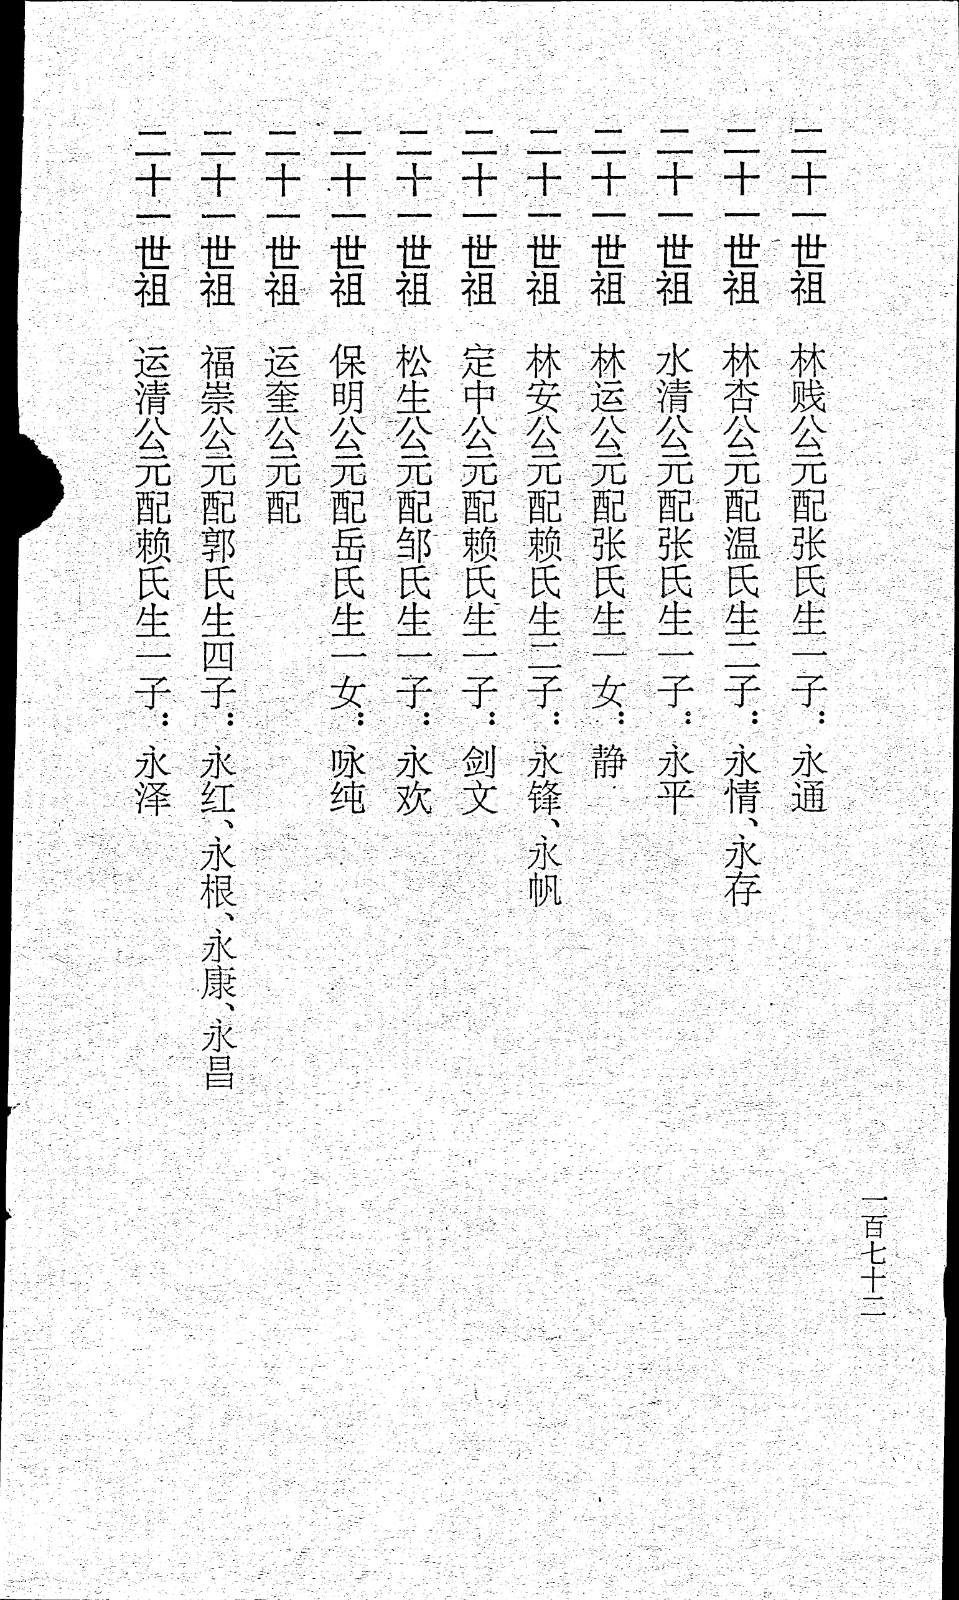 二十一世祖　林贱公元配张氏生一子：永通
二十一世祖　林杏公元配温氏生二子：永情、永存
二十一世祖　水清公元配张氏生一子：永平
二十一世祖　林运公元配张氏生一女：静
二十一世祖　林安公元配赖氏生二子：永锋、永帆
二十一世祖　定中公元配赖氏生一子：剑文
二十一世祖　松生公元配邹氏生一子：永欢
二十一世祖　保明公元配岳氏生一女：咏纯
二十一世祖　运奎公元配
二十一世祖　福崇公元配郭氏生四子：永红、永根、永康、永昌
二十一世祖　运清公元配赖氏生一子：永泽
一百七十二